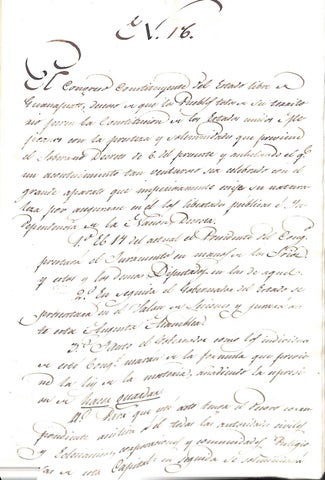 N. 18.
El Congreso Constituyente del Estado libre de
Guanajuato, deseoso de que la Pueblos todos de su transito
rio juren la Constitucion de los Estados unidos
con la prontitud y solemnidad que previene
el Soberano Decreto de 6 del presente y anhelando el q.e
un acontecimiento tan venturoso sea celebrado con el
grande aparato que imperiosamente exije su natura
leza por asegurarse en el las libertades publica é Yn
dependencia de la Nacion Decreta.
1.º El 14 del actual el Presidente del Cong.º
prestará el Juramento en manos de los Srios.
y estos y los demas Diputados en las de aquel.
2.º En seguida el Gobernador del Estado se
presentará en el Salon de Sesiones y jurará an
te esta Augusta Asamblea.
3.º Tanto el Gobernador como los individuos
de este Cong.º usarán de la formula que previe
ne la ley de la materia, añadiendo la expresion
de hacer guardar
4.º Para que este acto tenga el Decoro corres
pondiente asistirán á el todas las autoridades civiles
y Eclesiasticas, corporaciones y comunidades Religio
sas de esta Capital: en seguida se